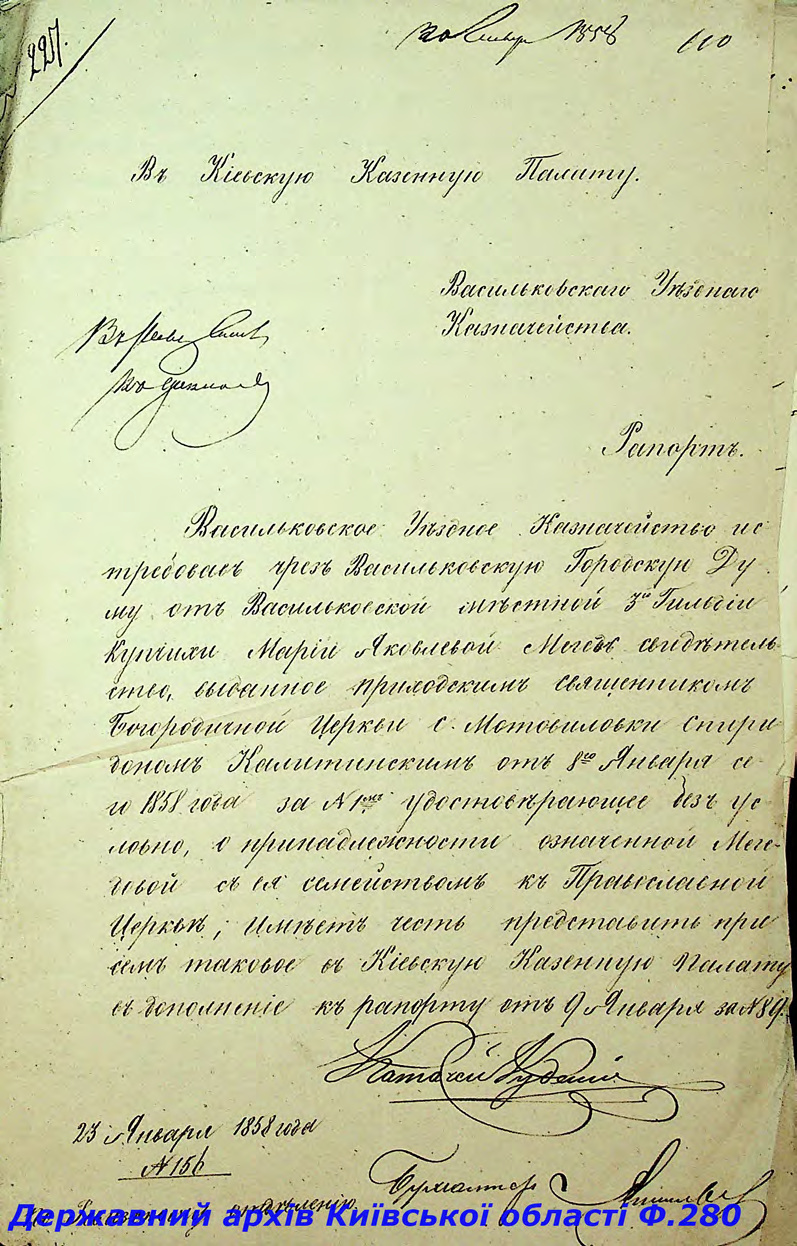 227.
1858 110
Въ Кіевскую Казенную Палату.
Васильковскаго Уѣзднаго
Казначейства.
Рапортъ.
Васильковское Уѣздное Казначейство ис
требовавъ чрезъ Васильковскую Городскую Ду
му отъ Васильковской мѣстной 3й Гильдіи
Купчихи Маріи Яковлевой свидѣтель
ство, выданное приходскимъ священникомъ
Богородичной Церкви с. Мотовиловки Спири
дономъ Калитинскимъ отъ 8го Января се
го 1858 года за N 1мъ удостовѣряющее безъ ус
ловно, о принадлежности означенной Меге-
товой съ ея семействомъ къ Православной
Церквѣ, имѣетъ честь представить при
семъ таковое въ Кіевскую Казенную Палату
въ дополненіе къ рапорту отъ 9 Января за N 89.
23 Января 1858 года
N 156
Бухгалтер
отдѣленію.
Державний архів Київської області Ф.280